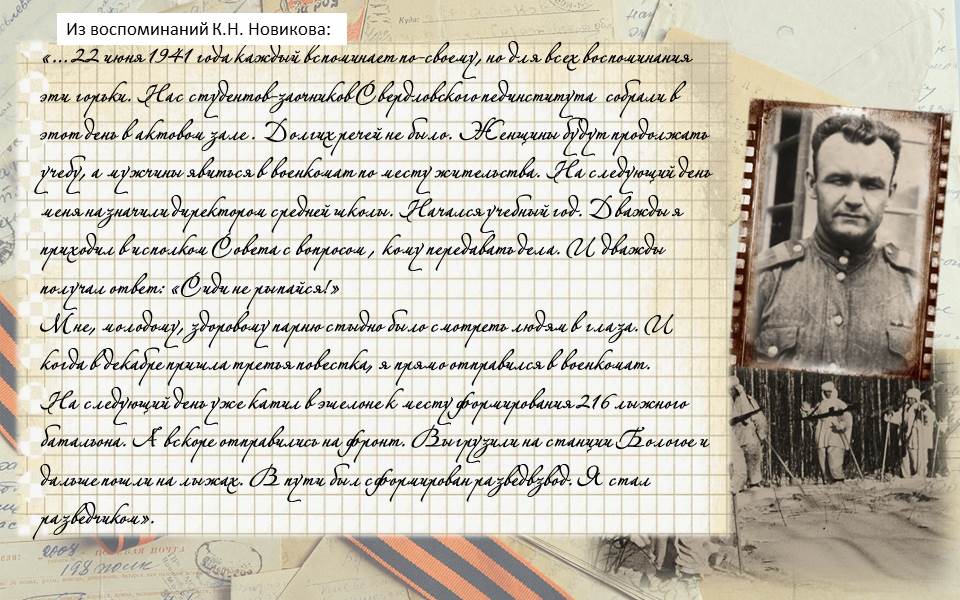 Из воспоминаний К.Н. Новикова:
«...22 июня 1941 года каждый вспоминает по-своему, но для всех воспоминания
эти горьки. Нас студентов-заочников Свердловского пединститута собрали в
этот день в актовом зале. Долгих речей не было. Женщины будут продолжать
учебу, а мужчины явиться в военкомат по месту жительства. На следующий день
меня назначили директором средней школы. Начался учебный год. Дважды я
приходил в исполком Совета с вопросом, кому передавать дела. И дважды
получал ответ: «Сиди не рыпайся!»
Мне, молодому, здоровому парню стыдно было смотреть людям в глаза. И
когда в декабре пришла третья повестка, я прямо отправился в военкомат.
На следующий день уже катил в эшелоне к месту формирования 216 лыжного
батальона. А вскоре отправились на фронт. Выгрузили на станции Бологое и
дальше пошли на лыжах. В пути был сформирован разведвзвод. Я стал
разведчиком».
Куда:
2008
198 полк